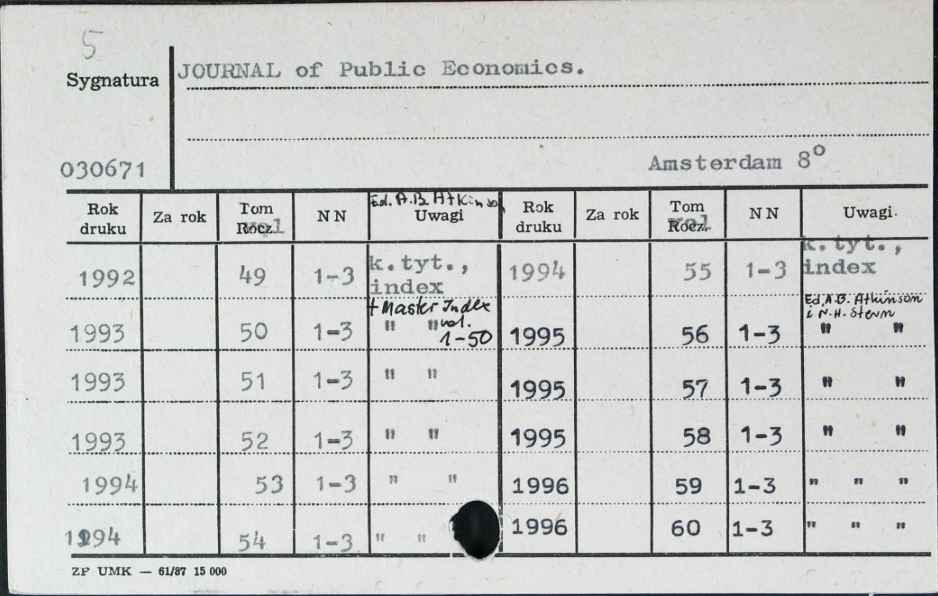 5
Sygnatura JOURNAL of Public Economics.
030671 Amsterdam 8°
Ed. A.B Atkinson
Rok druku Za rok Tom Rocz. vol NN Uwagi Rok druku Za rok Tom Rocz. vol NN Uwagi.
1992 49 1-3 k.tyt., index 1994 55 1-3 k.tyt., index
+ Master Index vol. 1-50 Ed. A.B. Atkinson i N.H. Stern
1993 50 1-3 " " 1995 56 1-3 " "
1993 51 1-3 " " 1995 57 1-3 " "
1993 52 1-3 " " 1995 58 1-3 " "
1994 53 1-3 " " 1996 59 1-3 " " "
1994 54 1-3 " " 1996 60 1-3 " " "
ZP UMK — 61/87 15 000